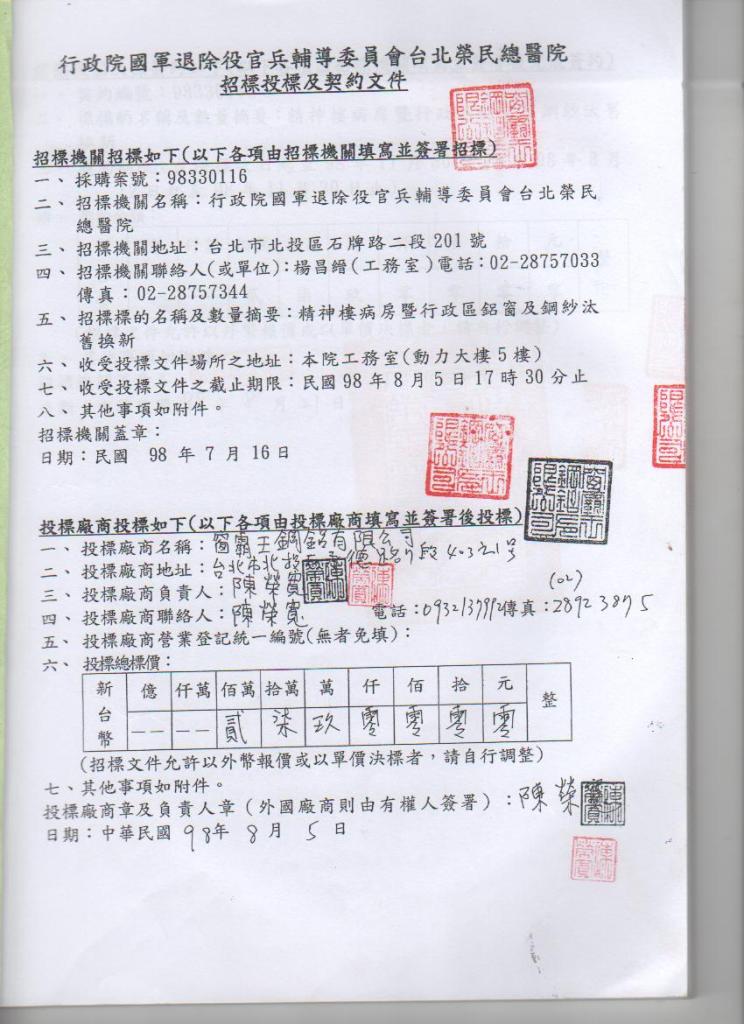 行政院國軍退除役官兵輔導委員會台北榮民總醫院
招標投標及契約文件
招標機關招標如下(以下各項由招標機關填寫並簽署招標)
一、採購案號：98330116
二、招標機關名稱：行政院國軍退除役官兵輔導委員會台北榮民
總醫院
三、招標機關地址：台北市北投區石牌路二段201號
四、招標機關聯絡人(或單位):楊昌縉(工務室)電話：02-28757033
傳真：02-28757344
五、招標標的名稱及數量摘要：精神樓病房暨行政區鋁窗及鋼紗汰
舊換新
六、收受投標文件場所之地址：本院工務室(動力大樓5樓)
七、收受投標文件之截止期限：民國98年8月5日17時30分止
八、其他事項如附件。
招標機關蓋章：
日期：民國 98 年 7 月 16 日
投標廠商投標如下(以下各項由投標廠商填寫並簽署後投標)
一、投標廠商名稱：窗霸王鋼鋁有限公司
二、投標廠商地址：台北市北投 德路 段403之1號
三、投標廠商負責人：陳榮寬
四、投標廠商聯絡人：陳榮寬 電話：0932137992 傳真：(02) 28923875
五、投標廠商營業登記統一編號(無者免填)：
六、投標總標價：
新台幣 億 仟萬 佰萬 拾萬 萬 仟 佰 拾 元 整
—— —— 貳 柒 玖 零 零 零 零
(招標文件允許以外幣報價或以單價決標者，請自行調整)
七、其他事項如附件。
投標廠商章及負責人章(外國廠商則由有權人簽署)：陳榮
日期：中華民國 98年 8月 5日